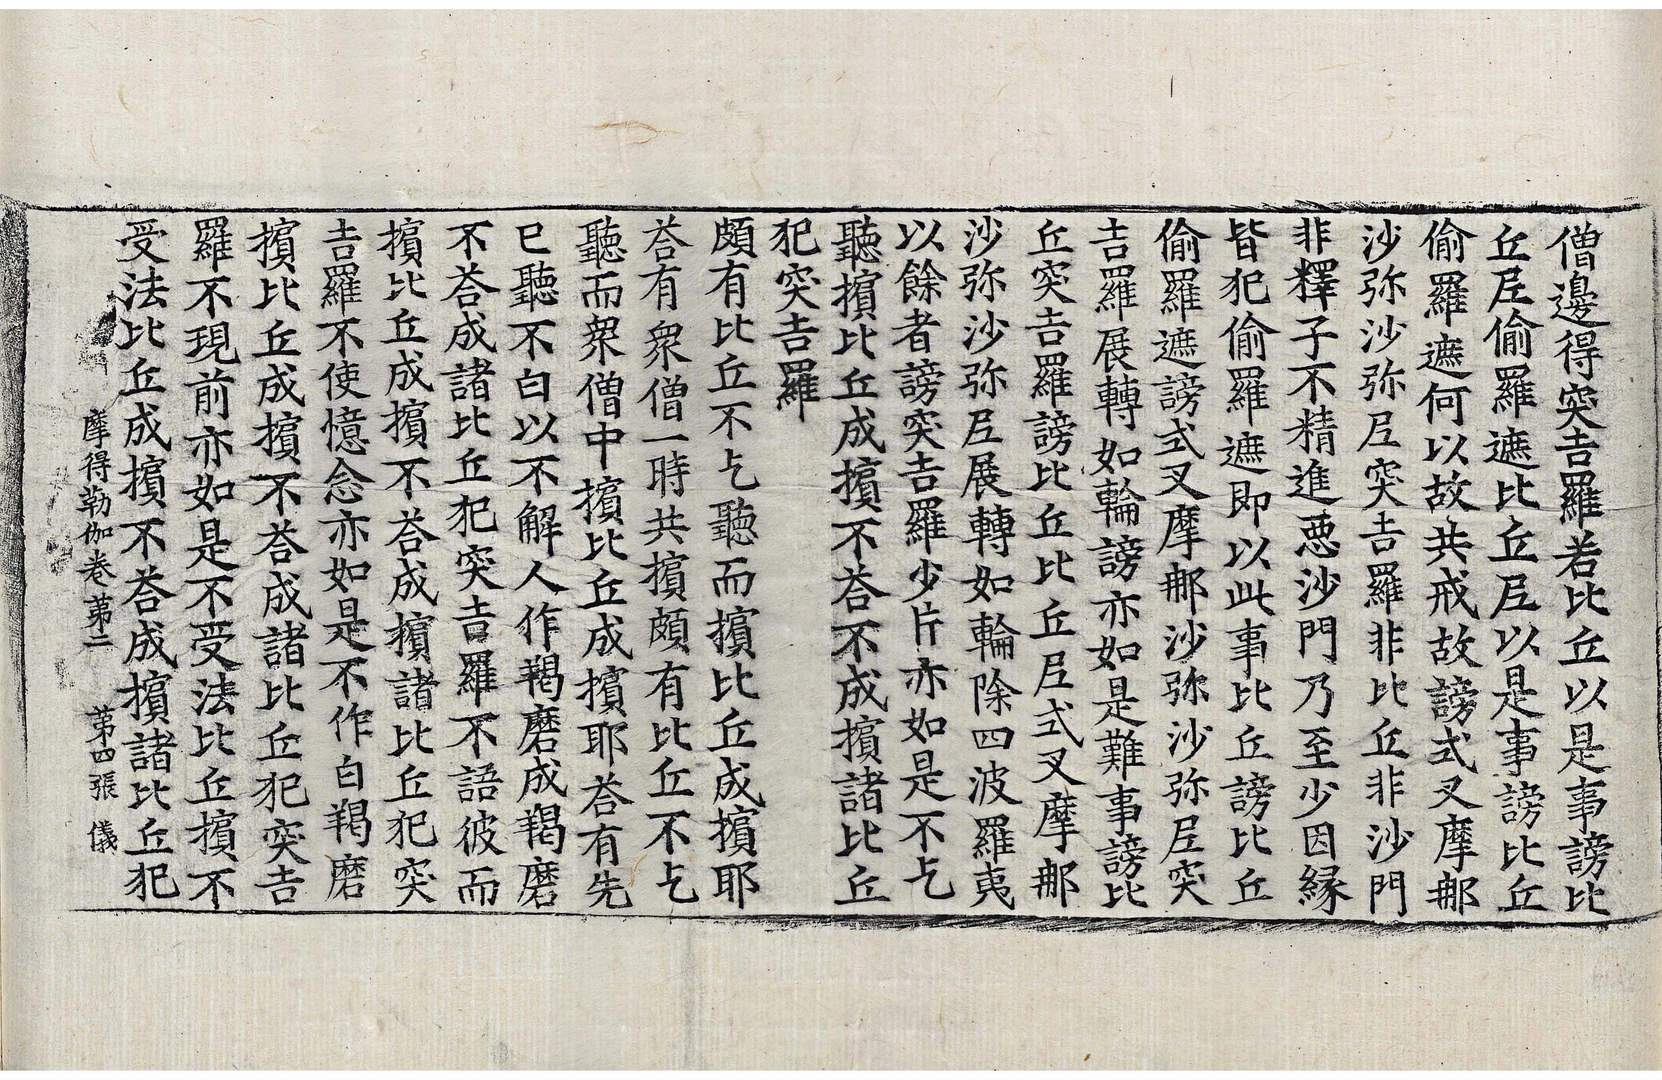 僧邊得突吉羅若比丘以是事謗比
丘尼偷羅遮比丘尼以是事謗比丘
偷羅遮何以故共戒故謗式叉摩𨙻
沙弥沙弥尼突吉羅非比丘非沙門
非釋子不精進惡沙門乃至少因緣
皆犯偷羅遮即以此事比丘謗比丘
偷羅遮謗式叉摩𨙻沙弥沙弥尼突
吉羅展轉如輪謗亦如是難事謗比
丘突吉羅謗比丘比丘尼式叉摩𨙻
沙弥沙弥尼展轉如輪除四波羅夷
以餘者謗突吉羅少片亦如是不乞
聽擯比丘成擯不荅不成擯諸比丘
犯突吉羅
頗有比丘不乞聽而擯比丘成擯耶
荅有衆僧一時共擯頗有比丘不乞
聽而衆僧中擯比丘成擯耶荅有先
已聽不白以不解人作羯磨成羯磨
不荅成諸比丘犯突吉羅不語彼而
擯比丘成擯不荅成擯諸比丘犯突
吉羅不使憶念亦如是不作白羯磨
擯比丘成擯不荅成諸比丘犯突吉
羅不現前亦如是不受法比丘擯不
受法比丘成擯不荅成擯諸比丘犯
摩得勒伽卷第二 第四張 儀